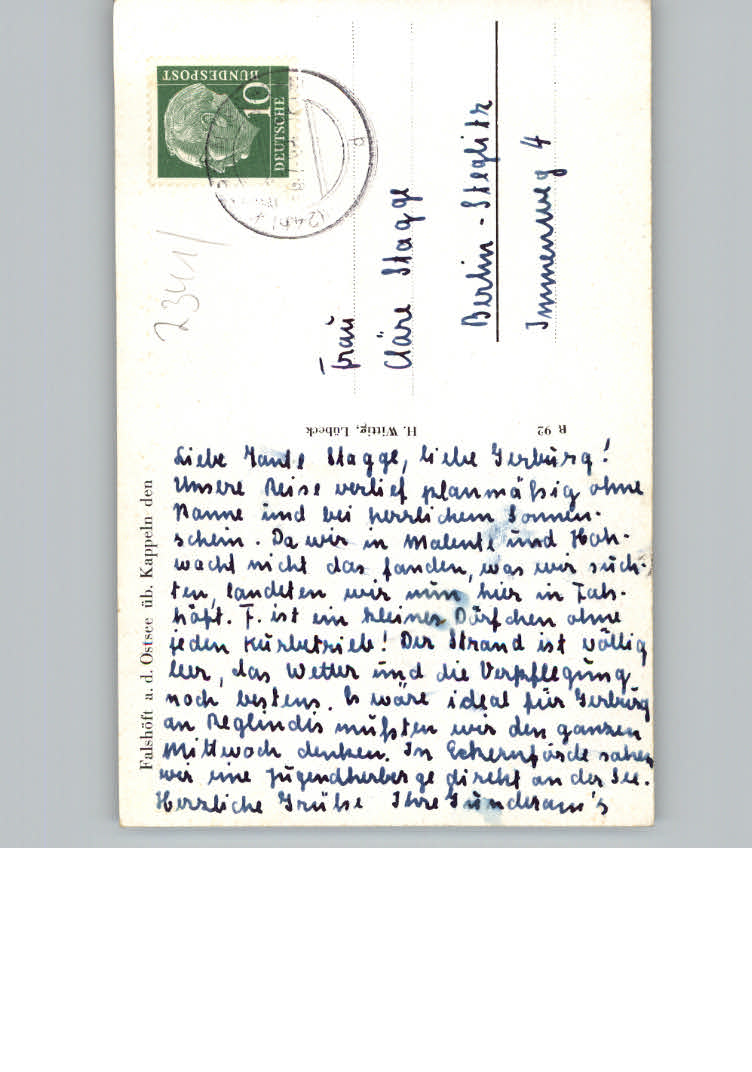 Falshöft a. d. Ostsee üb. Kappeln den
Liebe Tante Stagge, liebe Gerburg!
Unsere Reise verlief planmäßig ohne
Panne und bei herrlichem Sonnen-
schein. Da wir in Malente und Hoh-
wacht nicht das fanden, was wir such-
ten, landeten wir nun hier in Fals-
höft. F. ist ein kleines Dörfchen ohne
jeden Kurbetrieb! Der Strand ist völlig
leer, das Wetter und die Verpflegung
noch bestens. Es wäre ideal für Gerburg
an Reglindis mußten wir den ganzen
Mittwoch denken. In Eckernförde sahen
wir eine Jugendherberge direkt an der See.
Herzliche Grüße Ihre Gunderam's
H. Wittig, Lübeck
R 92
2341/
DEUTSCHE
BUNDESPOST
10
(24b)
Frau
Cläre Stagge
Berlin - Steglitz
Immenweg 4